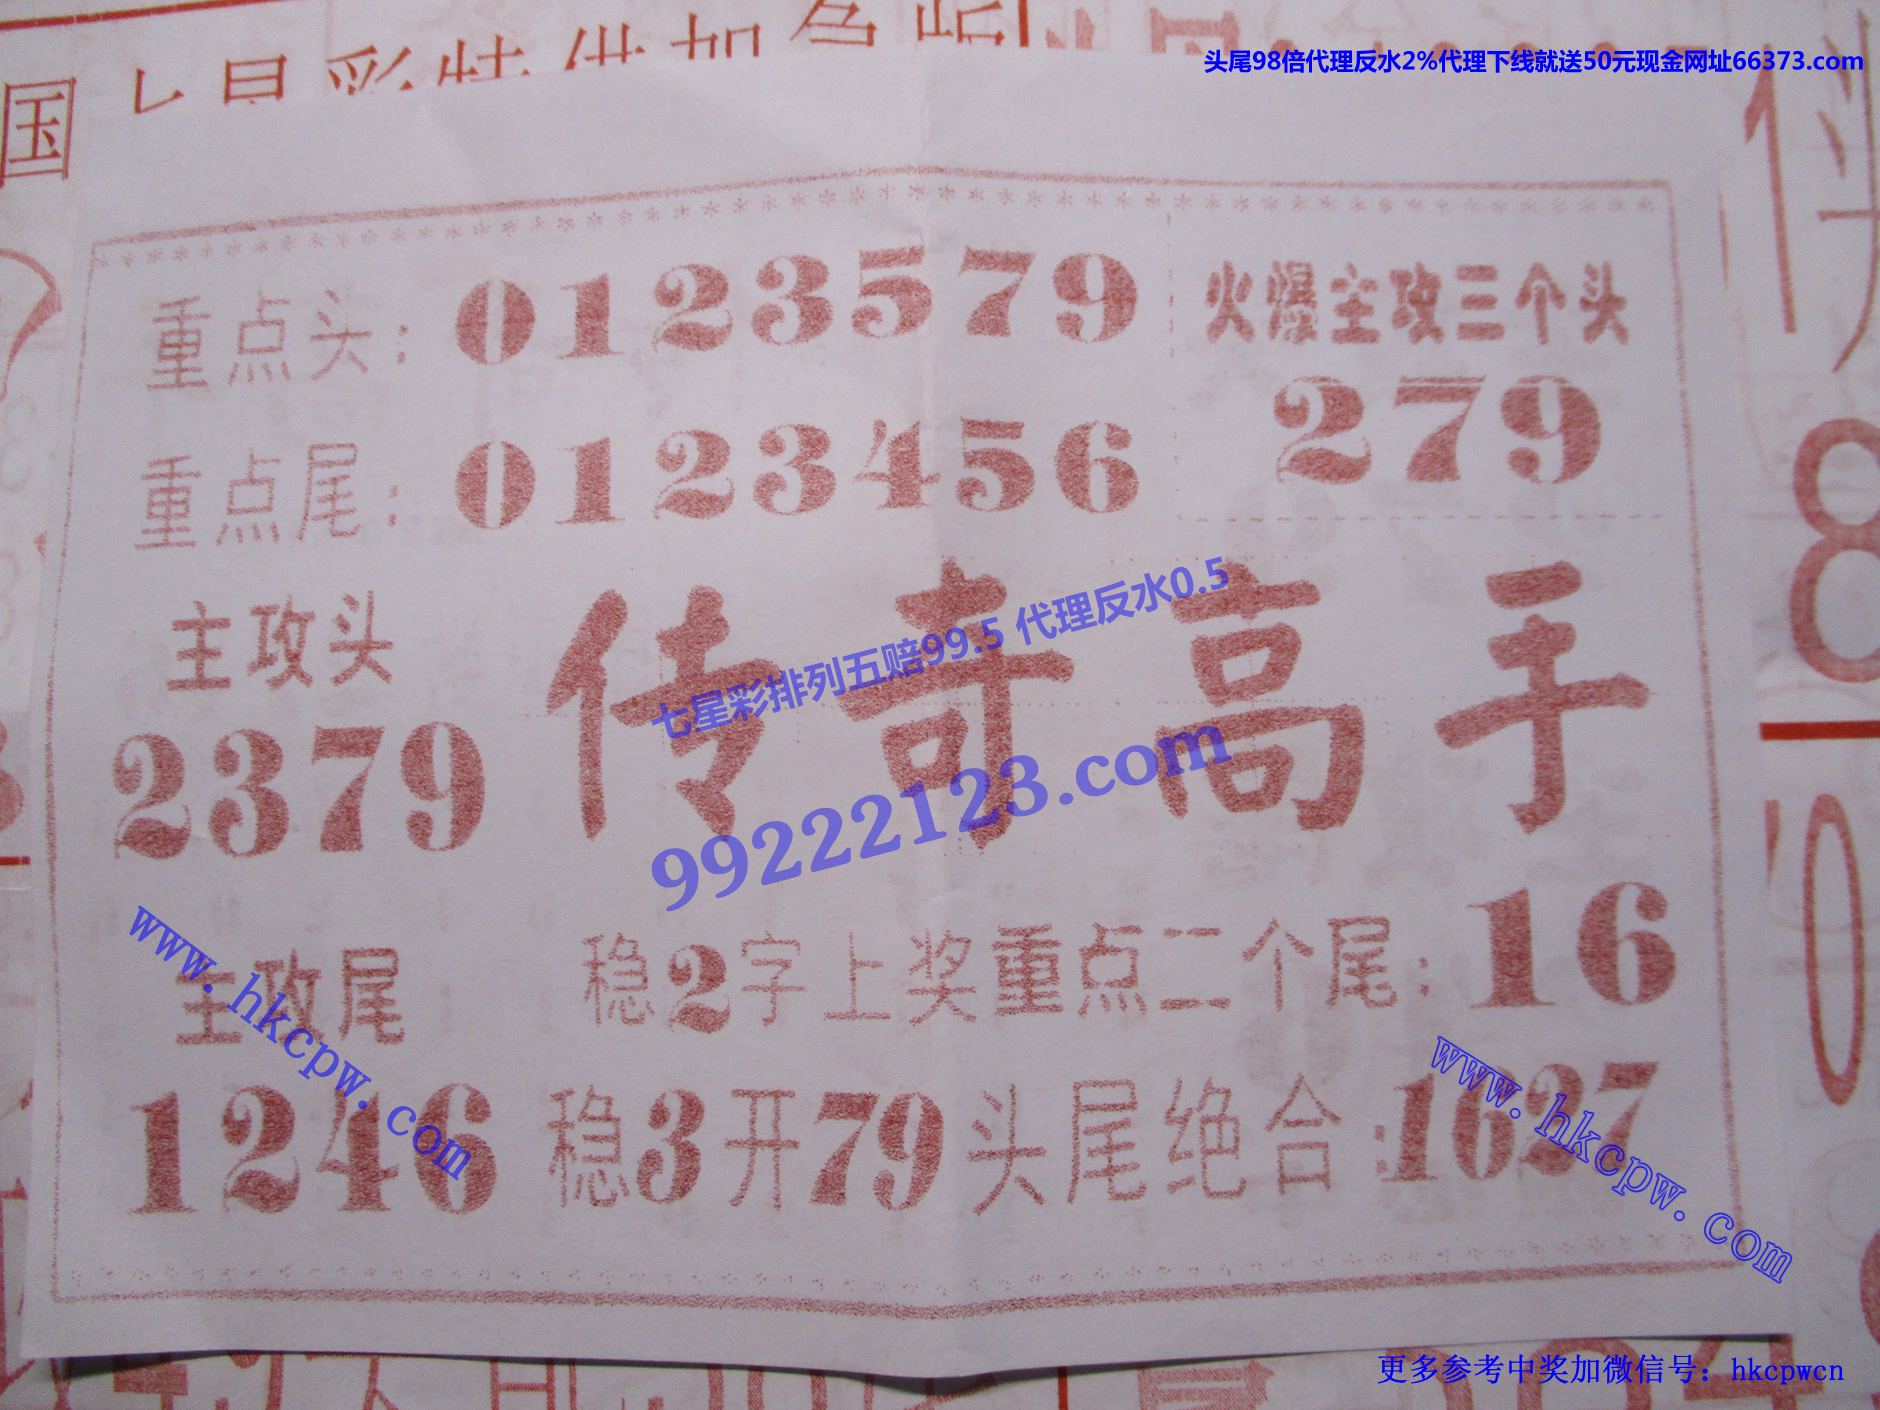 头尾98倍代理反水2%代理下线就送50元现金网址66373.com
国
重点头：0123579
火爆主攻三个头
279
重点尾：0123456
主攻头
2379
传奇高手
七星彩排列五赔99.5 代理反水0.5
99222123.com
主攻尾
1246
www.hkcpw.com
稳2字上奖重点二个尾：16
稳3开79头尾绝合：1627
www.hkcpw.com
更多参考中奖加微信号：hkcpwcn